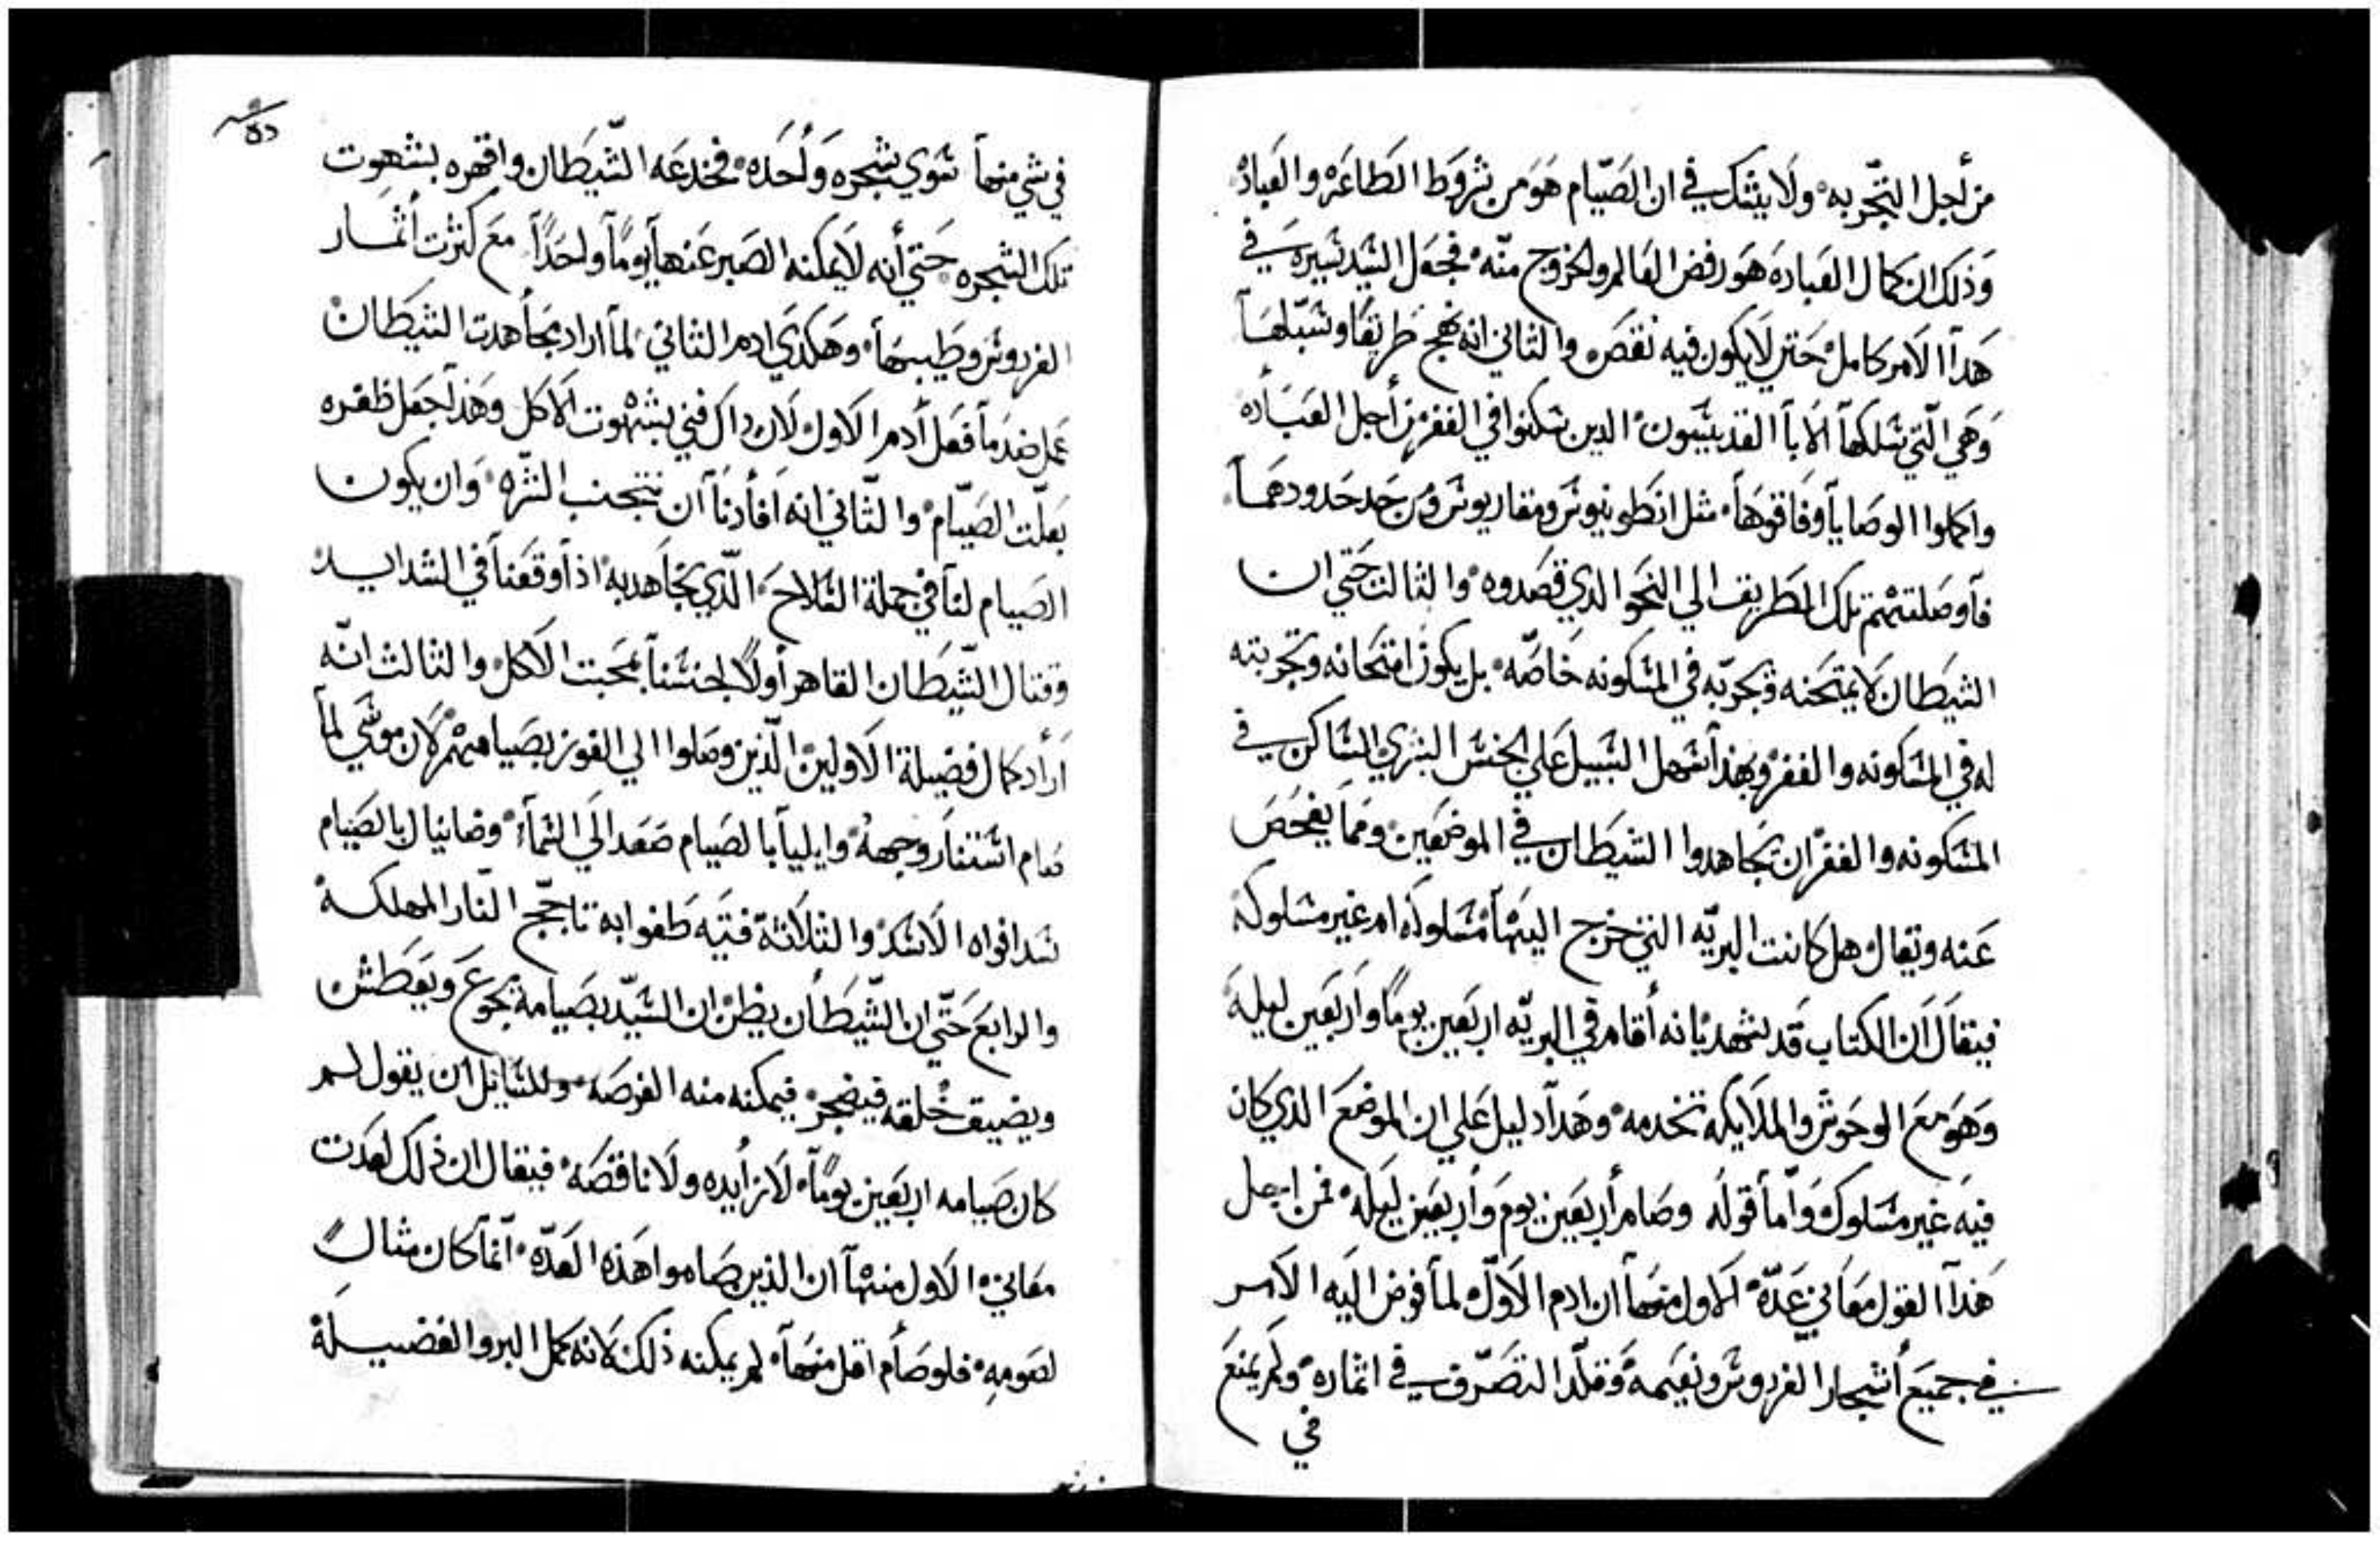 من أجل التجربه ولا يشك في ان الصيام هو من شروط الطاعه والعباده
وذلك ان كمال العباده هو رفض العالم والخروج منه فجعل السيد سيره في
هدا الامر كامل حتي لا يكون فيه نقص والثاني انه نهج طريقا وسبلها
وهي التي سلكها الابا القديسيون الدين سكنوا في القفر من أجل العباده
واكملوا الوصايا وفاقوها مثل انطونيوس ومقاريوس ومن حد حدودهما
فاوصلتهم تلك الطريق الي النحو الدي قصدوه والثالث حتي ان
الشيطان لا يمتحنه ويجربه في المسكونه خاصه بل يكون امتحانه وتجربته
له في المسكونه والقفر وبهذا سهل السبيل علي الجنس البشري الساكن في
المسكونه والقفر ان يجاهدوا الشيطان في الموضعين ومما يفحص
عنه ويقال هل كانت البريه التي خرج اليها مسلوكه ام غير مسلوكه
فيقال ان الكتاب قد يشهد بانه أقام في البريه اربعين يوما واربعين ليله
وهو مع الوحوش والملايكه تخدمه وهدا دليل علي ان الموضع الدي كان
فيه غير مسلوك واما قوله وصام أربعين يوم وأربعين ليله فمن اجل
هذا القول معاني عده الاول منها ان ادم الاول لما فوض اليه الامر
في جميع أشجار الفردوس ونعيمه وقلد التصرف في اثماره ولم يمنع
في
في شي منها سوي شجره واحده فخدعه الشيطان واقهره بشهوت
تلك الشجره حتي أنه لا يمكنه الصبر عنها يوما واحدا مع كثرت أثمار
الفردوس وطيبها وهكدي ادم الثاني لما اراد بمجاهدت الشيطان
عمل ضد ما فعل أدم الاول لان داك فني بشهوت الاكل وهذا جعل ظفره
بعلت الصيام والثاني انه افادنا ان نتجنب الشره وان يكون
الصيام لنا في جملة السلاح الذي نجاهد به اذا وقعنا في الشدايد
وقتال الشيطان القاهر أولا لجنسنا بمحبت الاكل والثالث انه
أراد كمال فضيلة الاولين الذين وصلوا الي الفوز بصيامهم لان موسي لما
صام استنار وجهه وايليا بالصيام صعد الي السماء ودانيال بالصيام
سد افواه الاسد والثلاثة فتيه طفوا به تاجج النار المهلكه
والرابع حتي ان الشيطان يظن ان السيد بصيامه يجوع ويعطش
ويضيق خلقه فيضجر فيمكنه منه الفرصه وللسايل ان يقول لم
كان صيامه اربعين يوما لا زايده ولا ناقصه فيقال ان ذلك لعدت
معاني الاول منها ان الذين صاموا هذه العده انما كان مثال
لصومه فلو صام اقل منها لم يمكنه ذلك لانه كمل البر والفضيلة